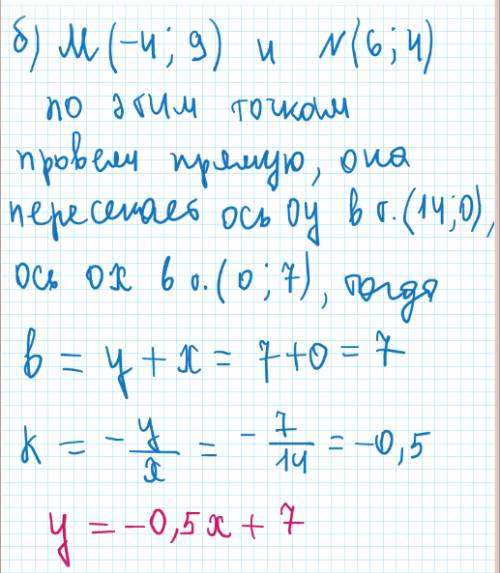 б) М(-4; 9) и N(6; 4)
по этим точкам
провели прямую, она
пересекает ось оу в т. (14; 0),
ось ох в т. (0; 7), тогда
в = у + х = 7 + 0 = 7
k = - у/х = - 7/14 = -0,5
у = -0,5х + 7